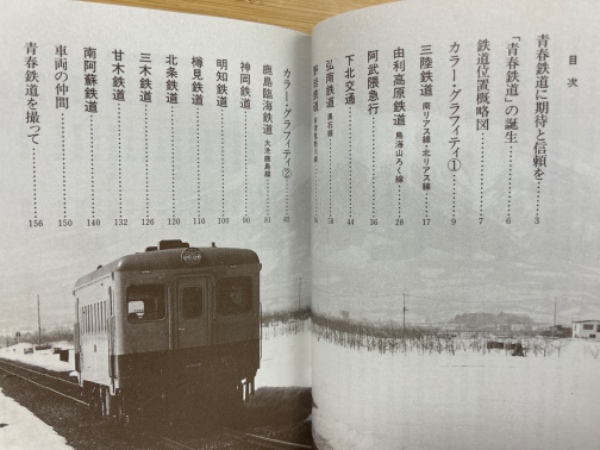 目次
青春鉄道に期待と信頼を…………3
「青春鉄道」の誕生…………6
鉄道位置概略図…………7
カラー・グラフィティ①…………9
三陸鉄道 南リアス線・北リアス線…………17
由利高原鉄道 鳥海山ろく線…………28
阿武隈急行…………36
下北交通…………44
弘南鉄道 黒石線…………58
野岩鉄道
カラー・グラフィティ②…………
鹿島臨海鉄道 大洗鹿島線…………81
神岡鉄道…………90
明知鉄道…………100
樽見鉄道…………110
北条鉄道…………120
三木鉄道…………126
甘木鉄道…………132
南阿蘇鉄道…………140
車両の仲間…………150
青春鉄道を撮って…………156